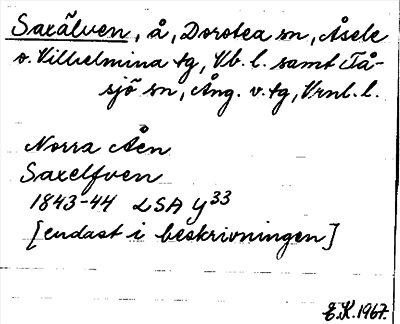 Saxälven, å, Dorotea sn, Åsele
o. Vilhelmina tg, Vb. l. samt Tå-
sjö sn, Ång. v. tg, Vrnl. l.
Norra Åen
Saxelfven
1843-44 LSA Y33
[endast i beskrivningen]
E.K. 1967.